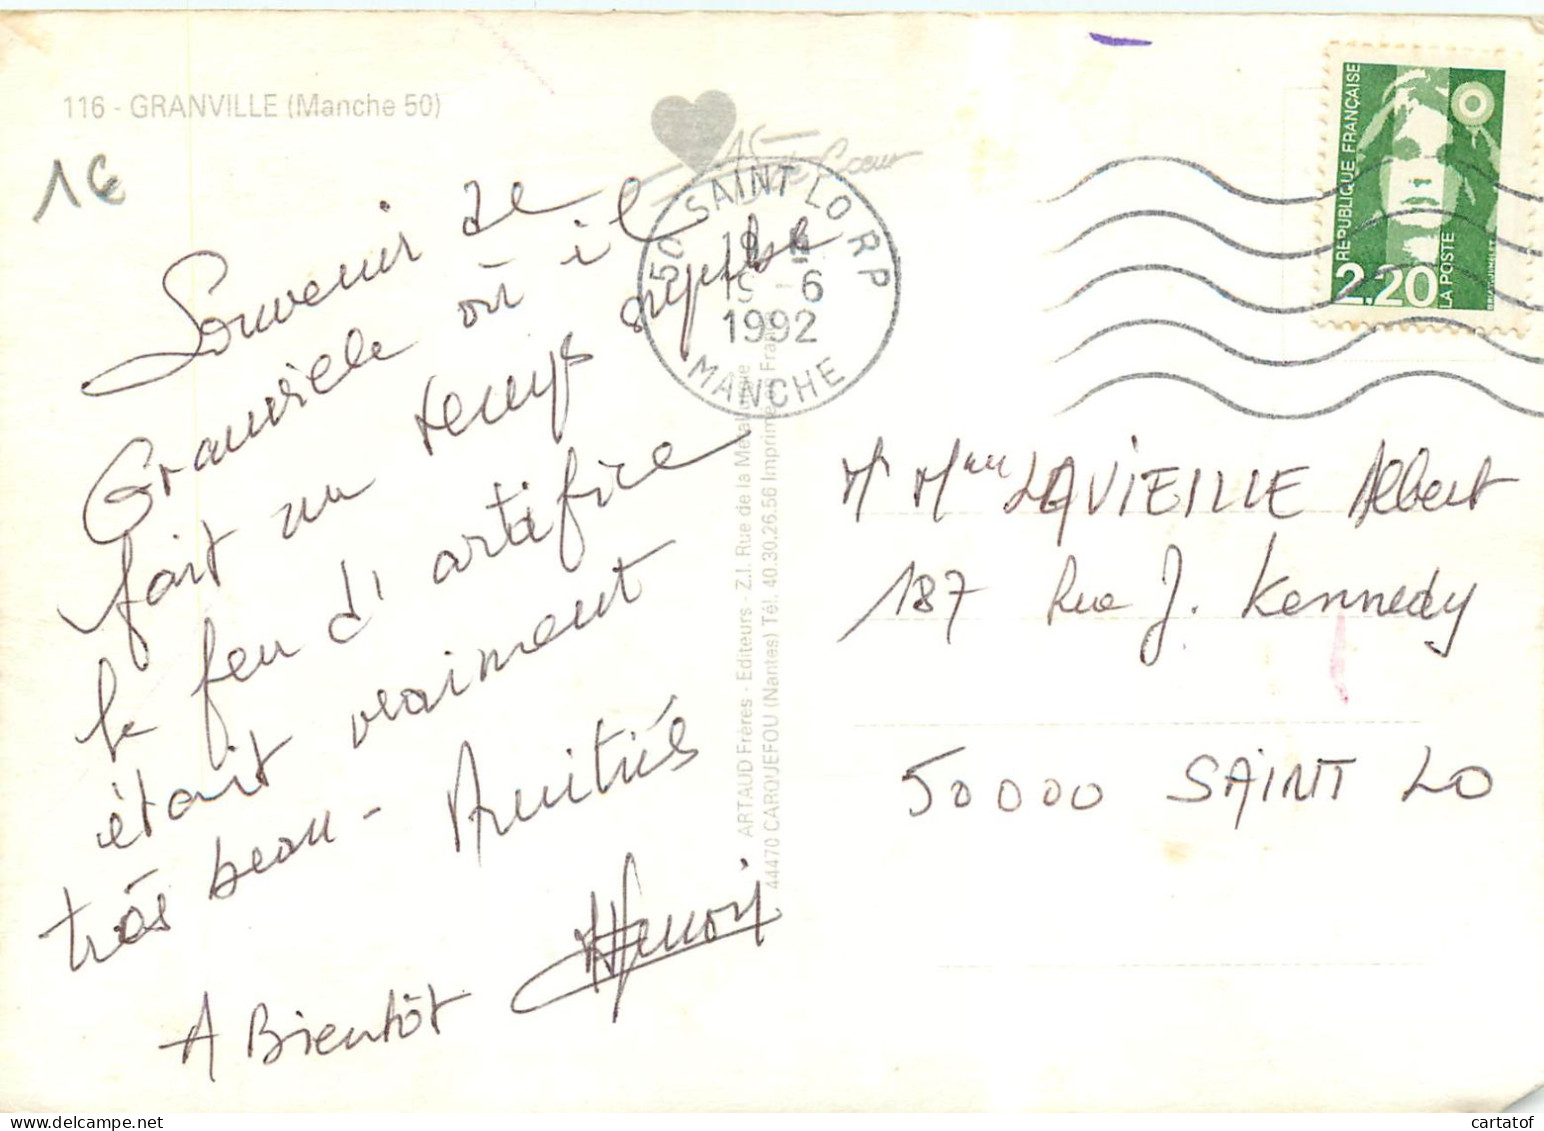 116 - GRANVILLE (Manche 50)
1€
Souvenir de
Granville où il
fait un temps superbe
le feu d'artifice
était vraiment
très beau - Amitiés
A Bientôt
de Coeur
50 SAINT LO RP
19 H
6
1992
MANCHE
ARTAUD Frères - Editeurs - Z.I. Rue de la Métallurgie
44470 CARQUEFOU (Nantes) Tél. 40.30.26.56 Imprimé en France
REPUBLIQUE FRANÇAISE
2.20
LA POSTE
Mr Mme LAVIEILLE Albert
187 Rue J. Kennedy
50000 SAINT LO
cartatof